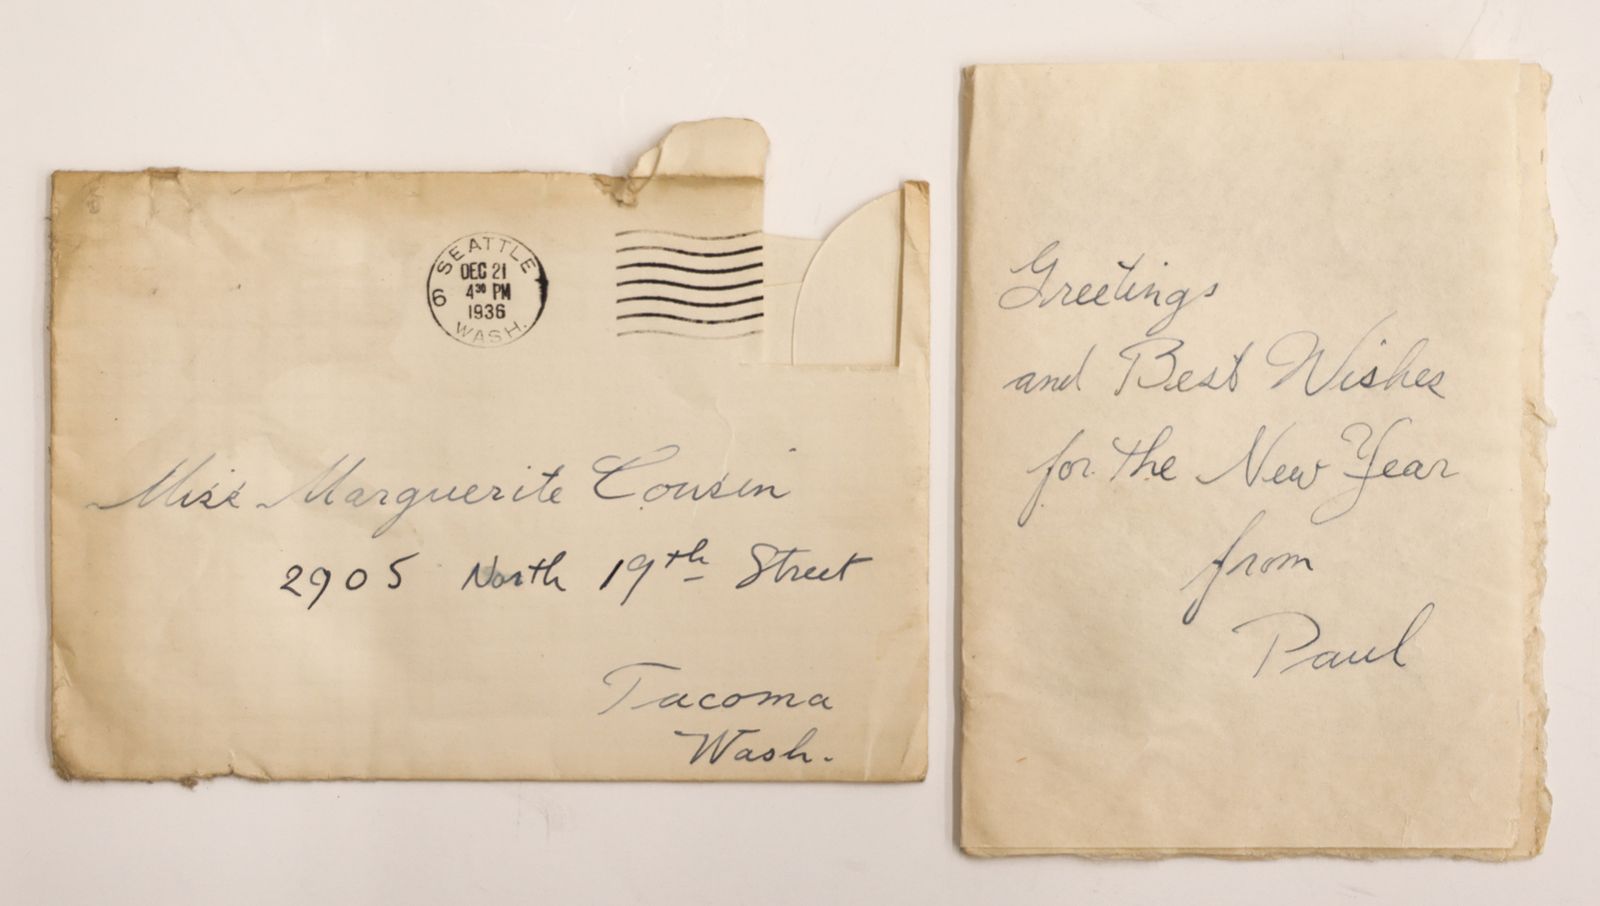 SEATTLE
DEC 21
4 30 PM
6
1936
WASH.
Miss Marguerite Cousin
2905 North 19th Street
Tacoma
Wash.
Greetings
and Best Wishes
for the New Year
from
Paul